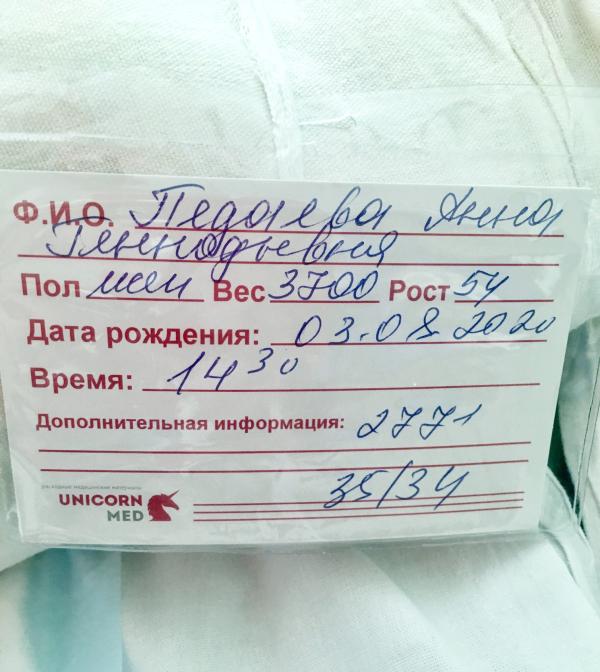 Ф.И.О. Педаева Анна
Геннадьевна
Пол жен Вес 3700 Рост 54
Дата рождения: 03.08.2020
Время: 14 30
Дополнительная информация: 2771
35/34
UNICORN
MED